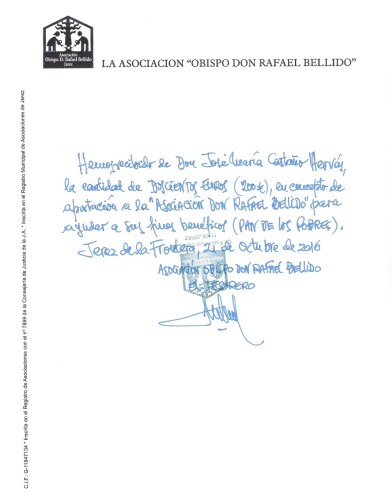 Asociación
Obispo D. Rafael Bellido
Jerez
LA ASOCIACION "OBISPO DON RAFAEL BELLIDO"
Hemos recibido de Don José María Castaño Hervás,
la cantidad de DOSCIENTOS EUROS (200€), en concepto de
aportación a la "ASOCIACIÓN DON RAFAEL BELLIDO" para
ayudar a sus fines benéficos (PAN DE LOS POBRES).
Jerez de la Frontera, 21 de Octubre de 2016
ASOCIACIÓN OBISPO DON RAFAEL BELLIDO
EL TESORERO
C.I.F.: G-11847134 * Inscrita en el Registro de Asociaciones con el nº 7899 de la Consejería de Justicia de la J.A. * Inscrita en el Registro Municipal de Asociaciones de Jerez